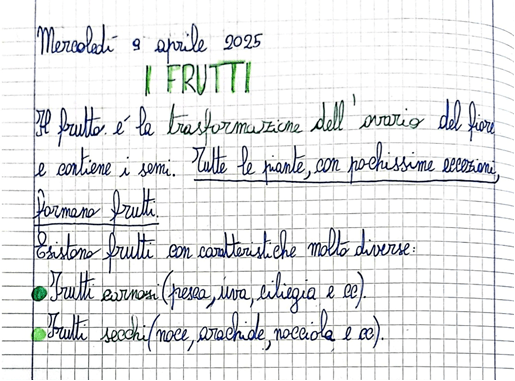 Mercoledì 9 aprile 2025
I FRUTTI
Il frutto é la trasformazione dell'ovario del fiore
e contiene i semi. Tutte le piante, con pochissime eccezioni,
formano frutti.
Esistono frutti con caratteristiche molto diverse:
Frutti carnosi (pesca, uva, ciliegia e ec).
Frutti secchi (noce, arachide, nocciola e cc).